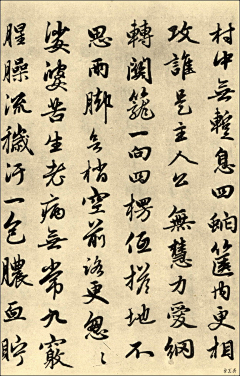 村中無暫息四蛇篋內更相
攻誰是主人公無慧力愛網
轉關籠一向四楞伍搓地不
思兩腳無梢空前路更怱〻
娑婆苦生老病無常九竅
腥臊流穢汙一包膿血貯